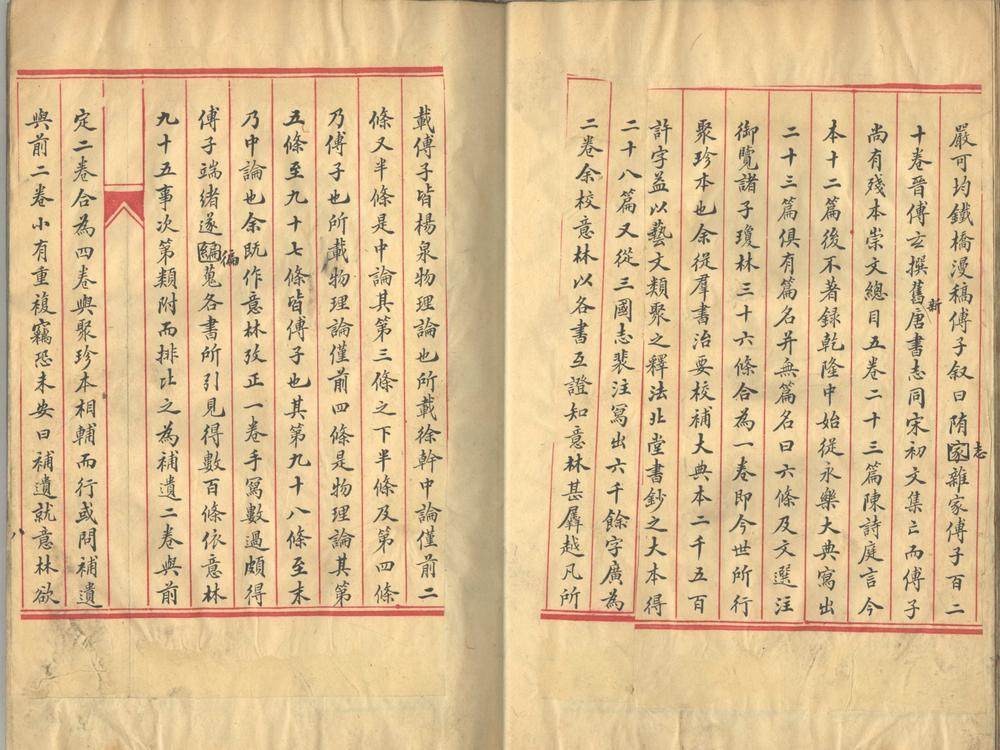 嚴可均鐵橋漫稿傅子叙曰隋家志雜家傅子百二
十卷晉傅玄撰舊新唐書志同宋初文集亡而傅子
尚有殘本崇文總目五卷二十三篇陳詩庭言今
本十二篇後不著録乾隆中始從永樂大典寫出
二十三篇俱有篇名并無篇名曰六條及文選注
御覽諸子瓊林三十六條合為一卷即今世所行
聚珍本也余從羣書治要校補大典本二千五百
許字益以藝文類聚之釋法北堂書鈔之大本得
二十八篇又從三國志裴注寫出六千餘字廣為
二卷余校意林以各書互證知意林甚羼越凡所
載傅子皆楊泉物理論也所載徐幹中論僅前二
條又半條是中論其第三條之下半條及第四條
乃傅子也所載物理論僅前四條是物理論其第
五條至九十七條皆傅子也其第九十八條至末
乃中論也余既作意林攷正一卷手寫數過頗得
傅子端緒遂編徧蒐各書所引見得數百條依意林
九十五事次第類附而排比之為補遺二卷與前
定二卷合為四卷與聚珍本相輔而行或問補遺
與前二卷小有重複竊恐未安曰補遺就意林欲
八